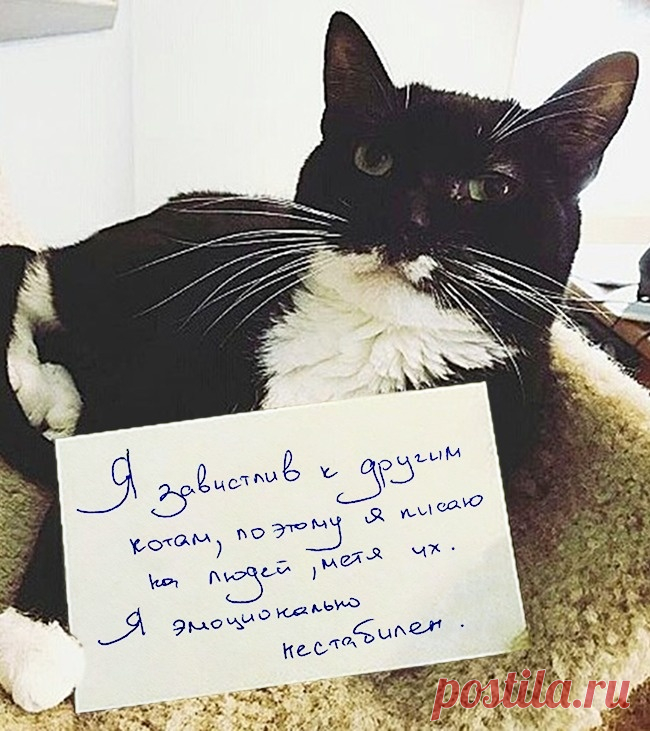 Я завистлив к другим
котам, поэтому я писаю
на людей, метя их.
Я эмоционально
нестабилен.
postila.ru